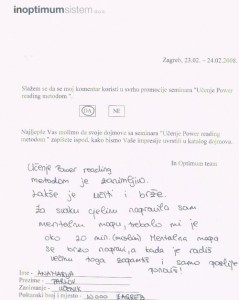 inoptimumsistem d.o.o.
Zagreb, 23.02. – 24.02.2008.
Slažem se da se moj komentar koristi u svrhu promocije seminara "Učenje Power
reading metodom ".
DA NE
Najljepše Vas molimo da svoje dojmove sa seminara "Učenje Power reading
metodom " zapišete ispod, kako bismo Vaše impresije uvrstili u katalog dojmova.
In Optimum team
Učenje Power reading
metodom je zanimljivo.
Lakše je učiti i brže.
Za svaku cjelinu napravila sam
mentalnu mapu, trebalo mi je
oko 20 min. (mislim) Mentalna mapa
se brzo napravi, a kada je radiš
većinu toga zapamtiš i samo poslije
ponoviš!
Ime :
Prezime :
Zanimanje : UČENIK
Poštanski broj i mjesto : 10 000 ZAGREB